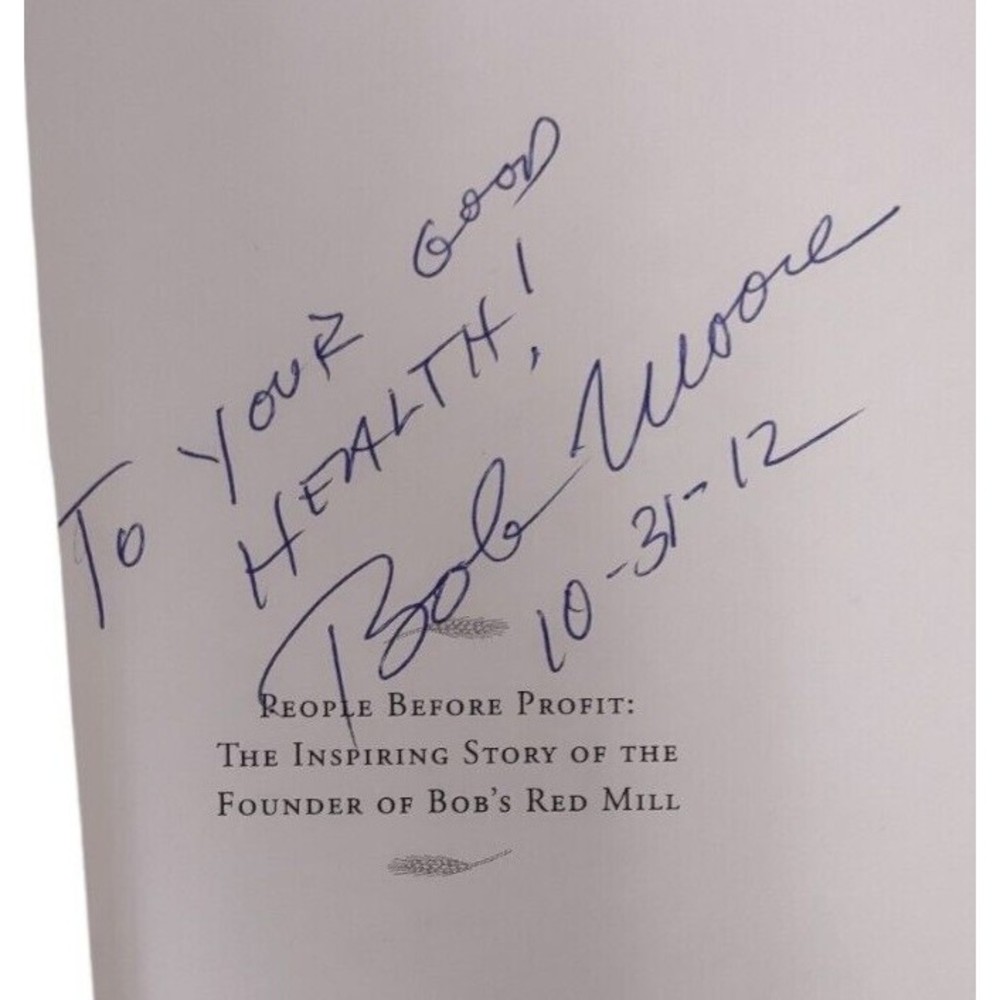 TO YOUR GOOD
HEALTH!
Bob Moore
10-31-12
PEOPLE BEFORE PROFIT:
THE INSPIRING STORY OF THE
FOUNDER OF BOB'S RED MILL